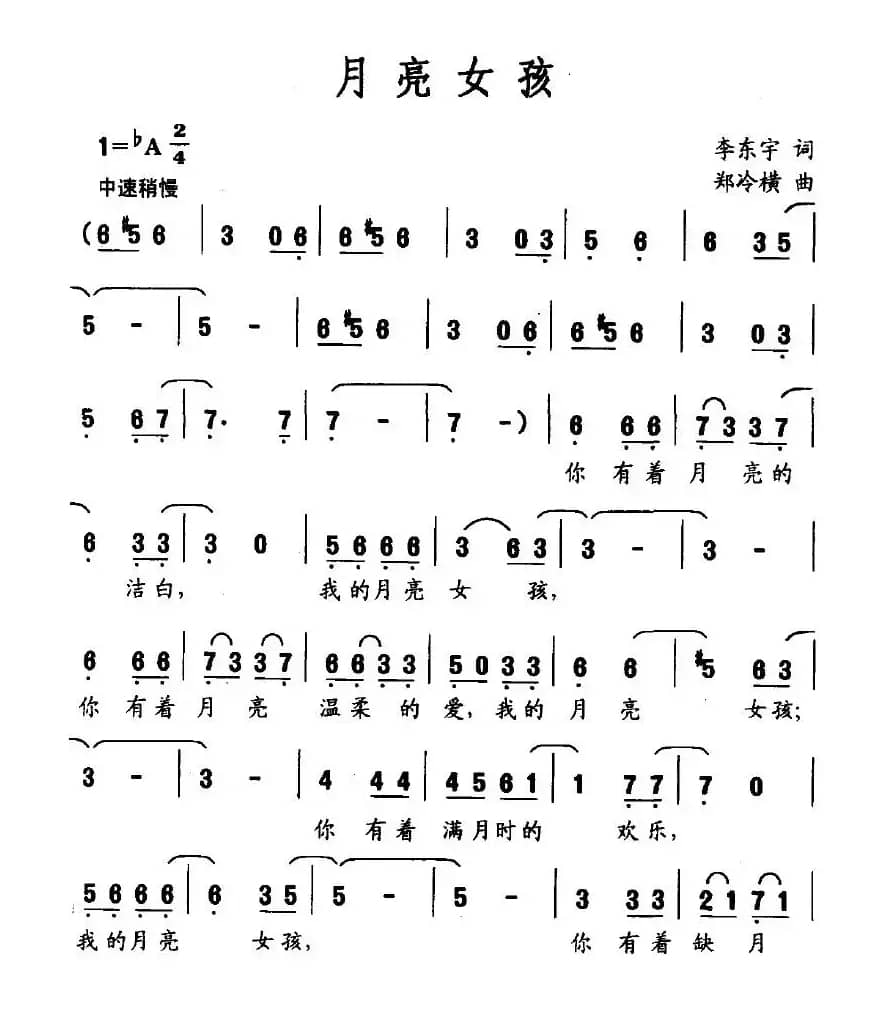 月亮女孩
1=♭A 2/4
李东宇 词
中速稍慢
郑冷横 曲
(6 #5 6 | 3 0 6 | 6 #5 6 | 3 0 3 | 5 6 | 6 3 5 |
5 - | 5 - | 6 #5 6 | 3 0 6 | 6 #5 6 | 3 0 3 |
5 6 7 | 7. 7 | 7 - | 7 -) | 6 6 6 | 7 3 3 7 |
你 有着 月 亮的
6 3 3 | 3 0 | 5 6 6 6 | 3 6 3 | 3 - | 3 - |
洁白, 我的月亮 女 孩,
6 6 6 | 7 3 3 7 | 6 6 3 3 | 5 0 3 3 | 6 6 | #5 6 3 |
你 有着 月 亮 温柔 的 爱, 我的 月 亮 女孩;
3 - | 3 - | 4 4 4 | 4 5 6 1 | 1 7 7 | 7 0 |
你 有着 满月时的 欢乐,
5 6 6 6 | 6 3 5 | 5 - | 5 - | 3 3 3 | 2 1 7 1 |
我的月亮 女孩, 你 有着 缺 月